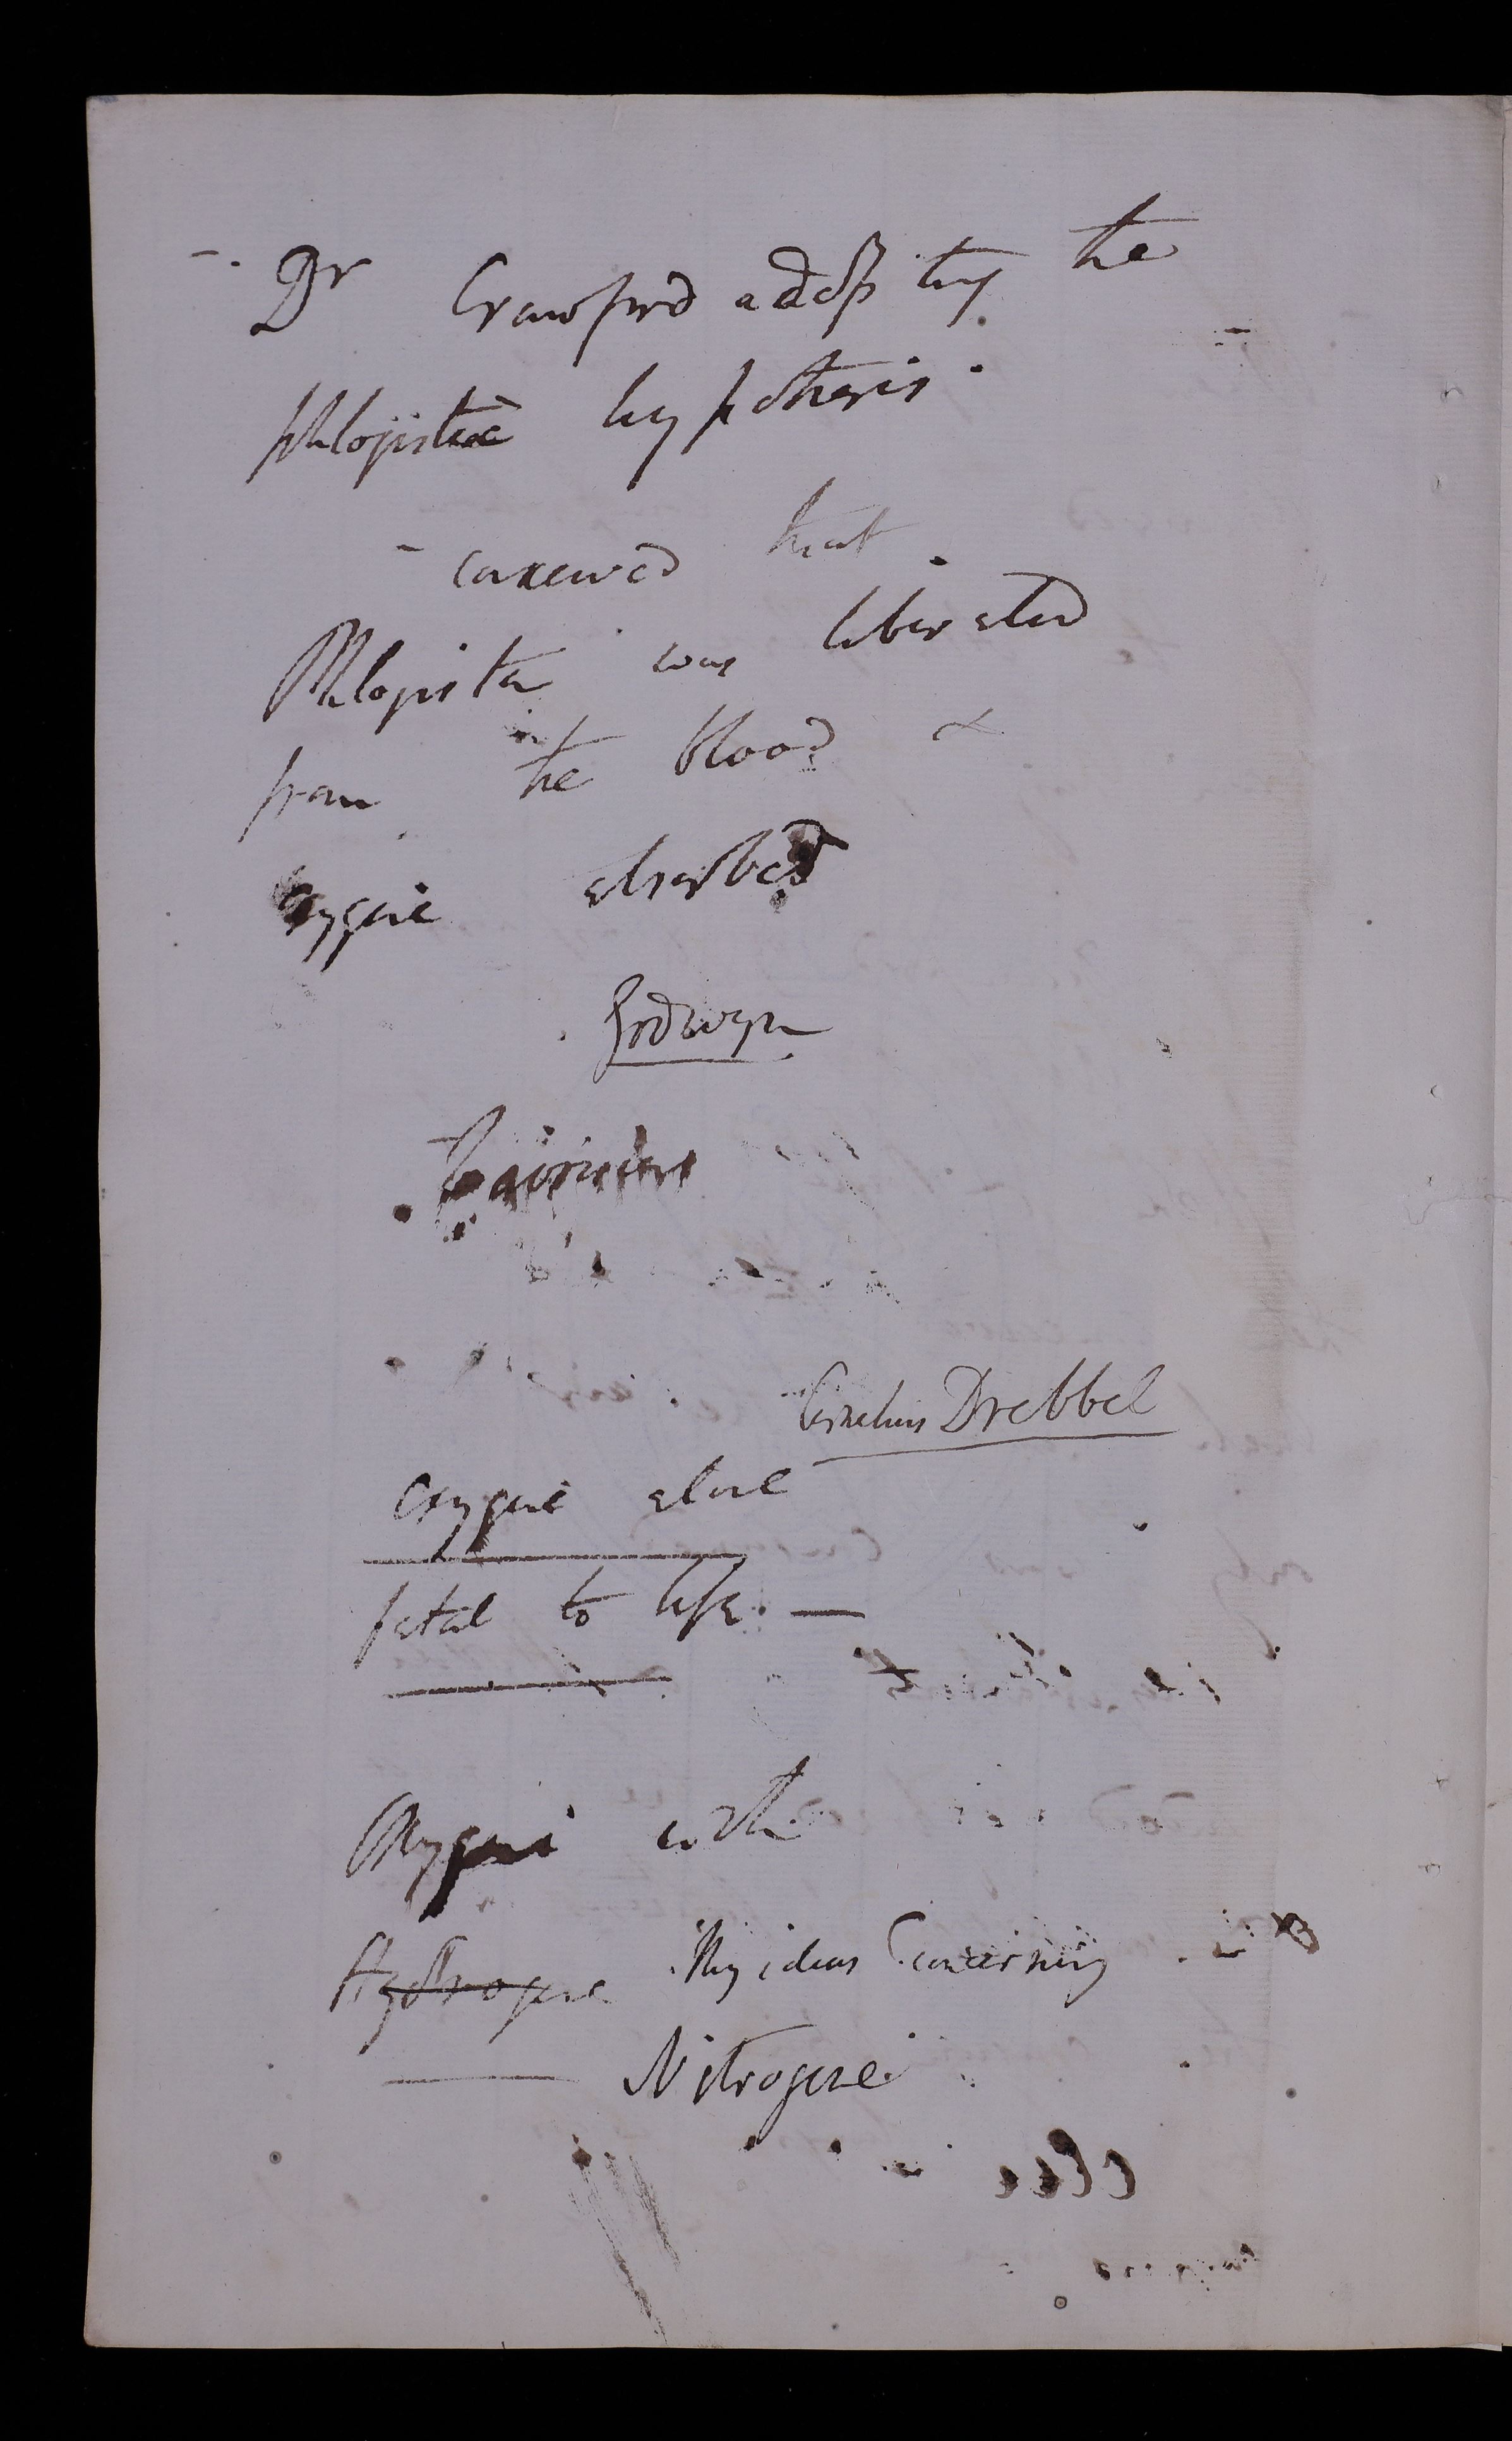 - Dr Crawford addopting the
phlogistic hypothesis.
- conceived that
Phlogiston was liberated
from the blood &
oxygene absorbed
Godwyn
Lavoisier
Cornelius Drebbel
Oxygene alone
fatal to life. —
Oxygene with
Hydrogene My ideas Concerning
Nitrogene